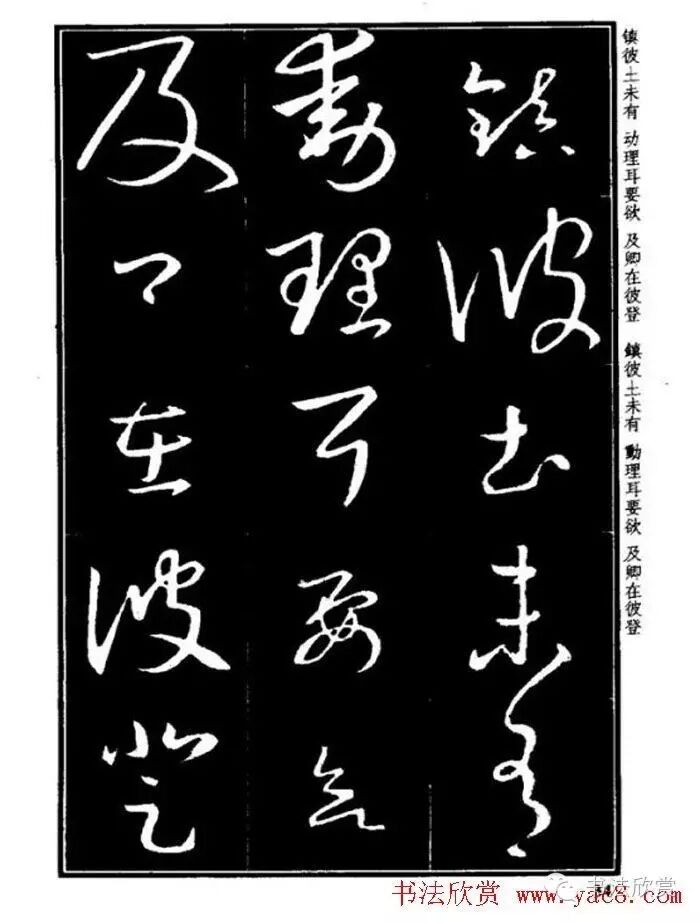 鎮彼土未有
動理耳要欲
及卿在彼登
镇彼土未有 动理耳要欲 及卿在彼登 鎮彼土未有 動理耳要欲 及卿在彼登
书法欣赏 www.yac8.com
书法欣赏